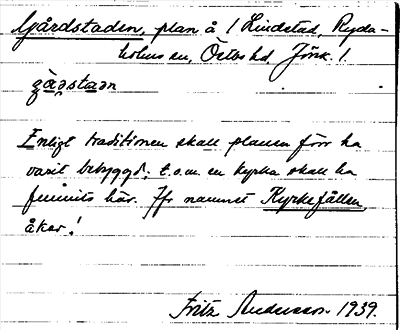 Gårdstaden, plan å 1 Lindstad, Ryda-
holms sn, Östbo hd, Jönk. l.
gàḍstadn
Enligt traditionen skall planen förr ha
varit bebyggd; t.o.m. en kyrka skall ha
funnits här. Jfr namnet Kyrkefållen,
åker!
Fritz Andersson 1939.